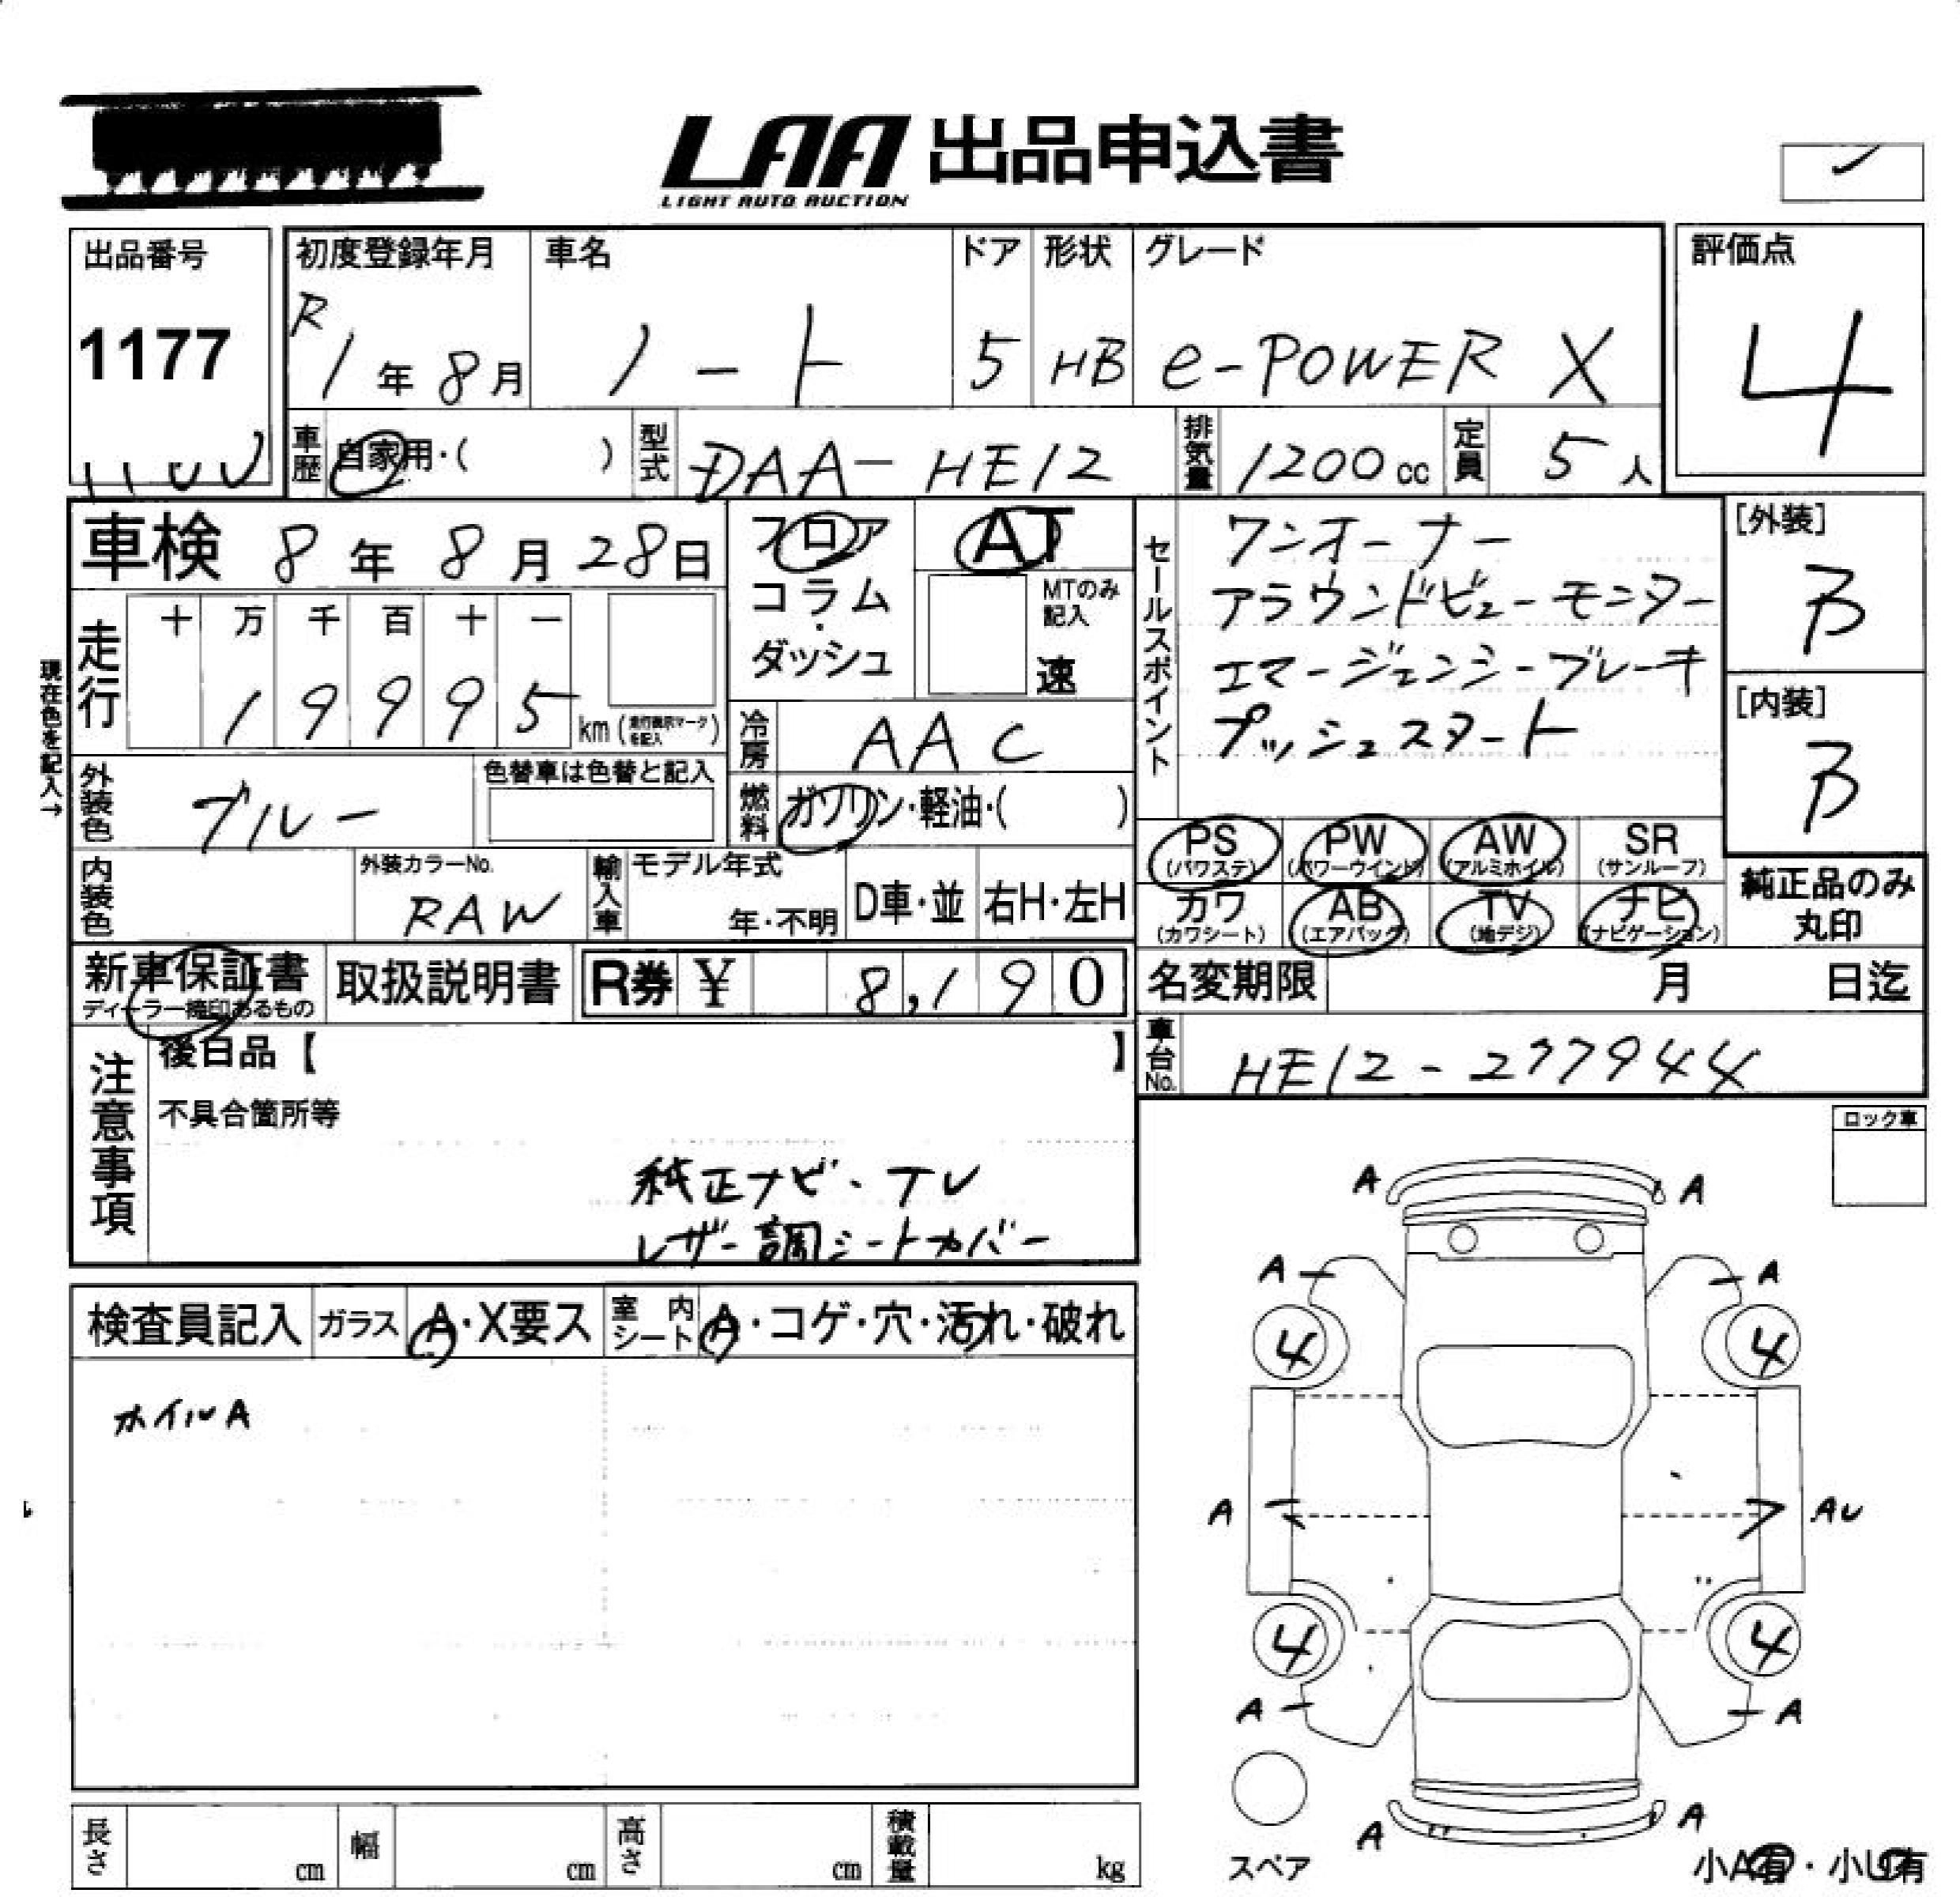 LAA 出品申込書
LIGHT AUTO AUCTION
出品番号
1177
初度登録年月
R1年8月
車名
ノート
ドア
5
形状
HB
グレード
e-POWER X
評価点
4
車歴
自家用・( )
型式
DAA-HE12
排気量
1200cc
定員
5人
車検 8年8月28日
フロア
コラム
・
ダッシュ
AT
MTのみ記入
速
セールスポイント
ワンオーナー
アラウンドビューモニター
エマージェンシーブレーキ
プッシュスタート
[外装]
B
[内装]
B
現在色を記入→
走行
十 万 千 百 十 一
1 9 9 9 5 km (走行表示マークを記入)
冷房
AAC
外装色
ブルー
色替車は色替と記入
燃料
ガソリン・軽油・( )
内装色
外装カラーNo.
RAW
輸入車
モデル年式
年・不明
D車・並
右H・左H
PS
(パワステ)
PW
(パワーウインド)
AW
(アルミホイル)
SR
(サンルーフ)
カワ
(カワシート)
AB
(エアバック)
TV
(地デジ)
ナビ
(ナビゲーション)
純正品のみ
丸印
新車保証書
ディーラー捺印あるもの
取扱説明書
R券 ¥ 8,190
名変期限 月 日迄
車台No.
HE12-277944
注意事項
後日品【 】
不具合箇所等
純正ナビ・TV
レザー調シートカバー
ロック車
検査員記入
ガラス
A・X要ス
室内シート
A・コゲ・穴・汚れ・破れ
ホイルA
A A
A A
4 4
A AU
4 4
A A
A A
スペア
小A有・小U有
長さ cm
幅 cm
高さ cm
積載量 kg